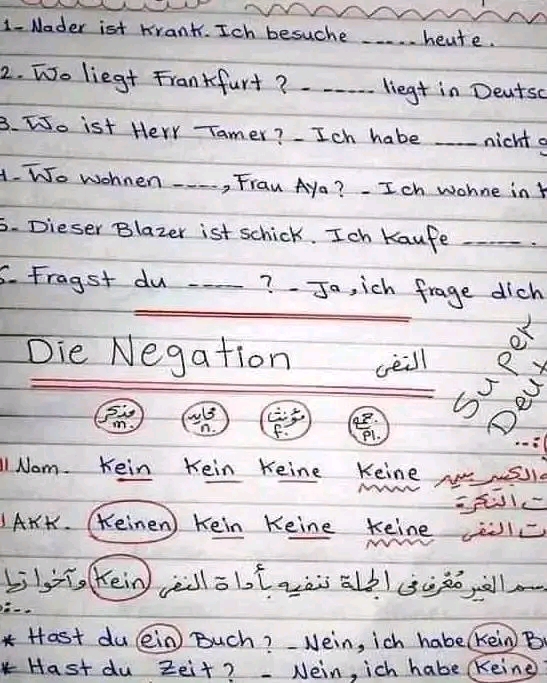 1- Nader ist krank. Ich besuche ----- heute.
2. Wo liegt Frankfurt ? - ------ liegt in Deutsc
3. Wo ist Herr Tamer? - Ich habe ---- nicht g
4- Wo wohnen ----, Frau Aya? - Ich wohne in k
5- Dieser Blazer ist schick. Ich kaufe -----.
6- Fragst du ---- ? - Ja, ich frage dich
Die Negation النفى
Super
Deut
مذكر محايد مؤنث جمع
m. n. f. pl.
Nom. Kein Kein Keine Keine
النكرة
AKK. Keinen Kein Keine Keine
النفى
سم الغير مُعَّرف فى الجملة ننفيه بأداة النفى Kein وآخواتها
* Hast du ein Buch ? - Nein, ich habe Kein B
* Hast du Zeit ? - Nein, ich habe Keine